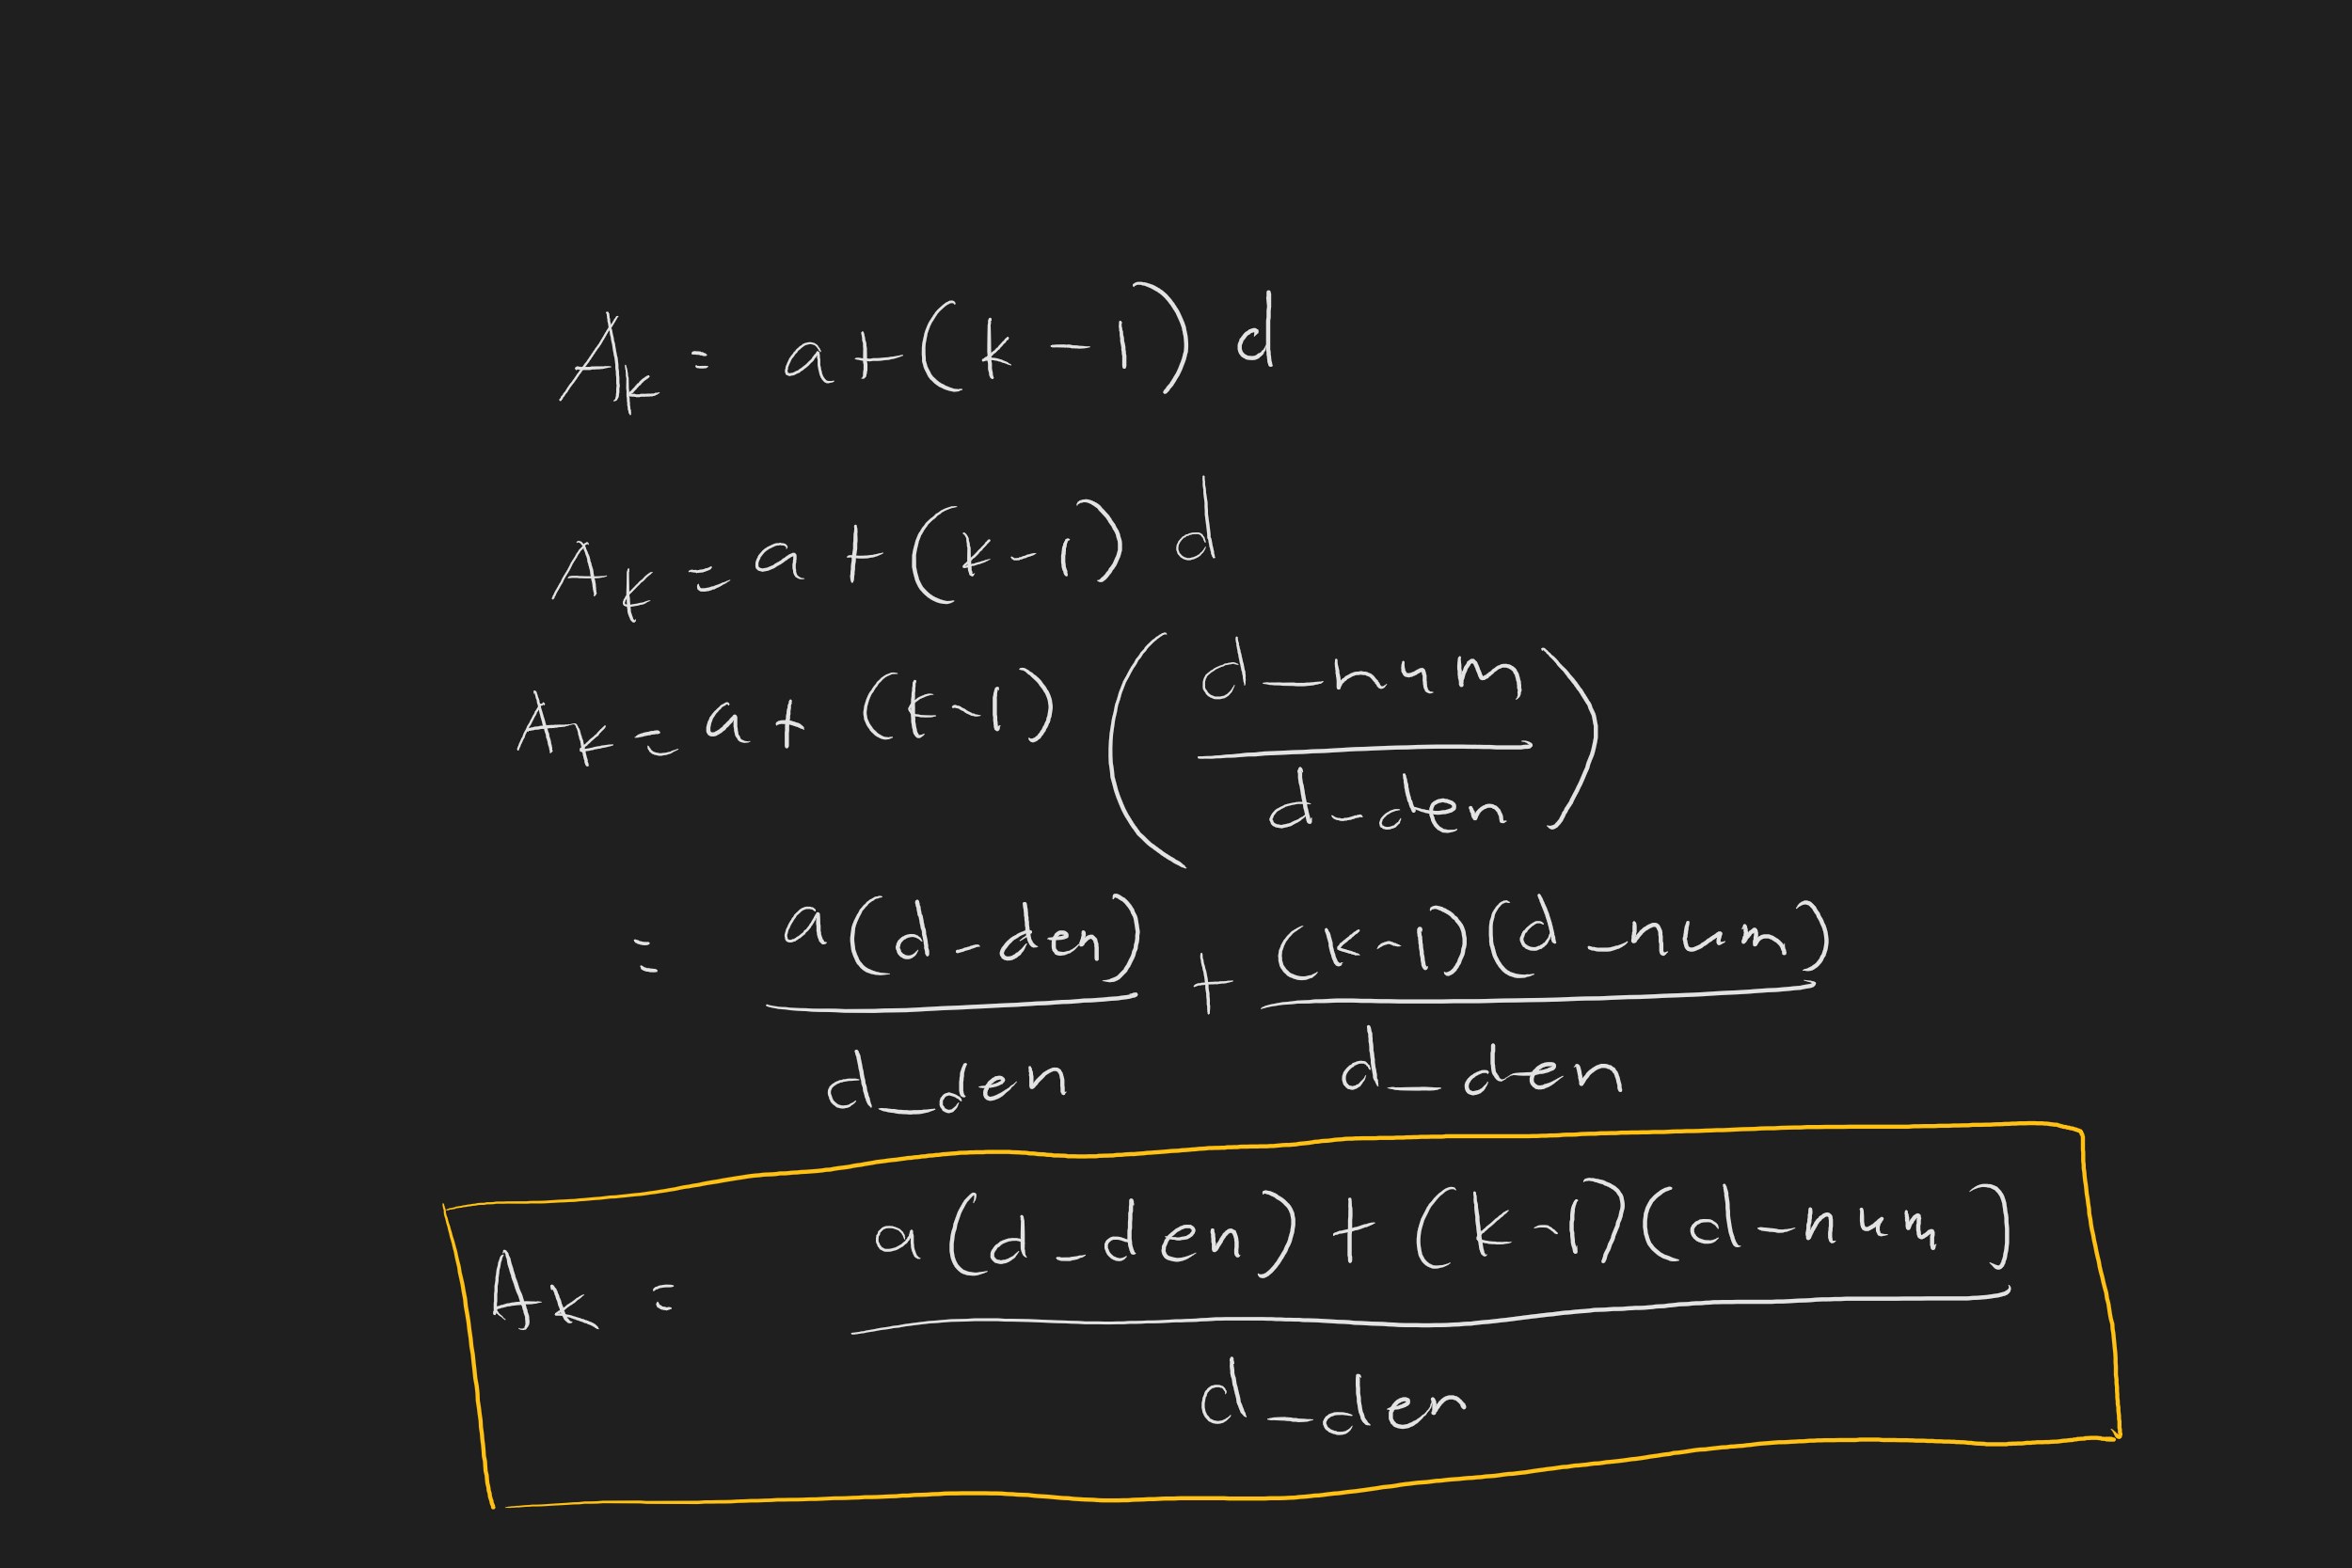 A_k = a + (k - 1) d
A_k = a + (k - 1) d
A_k = a + (k - 1) (d_num / d_den)
= a(d_den) / d_den + (k - 1)(d_num) / d_den
A_k = (a(d_den) + (k - 1)(d_num)) / d_den